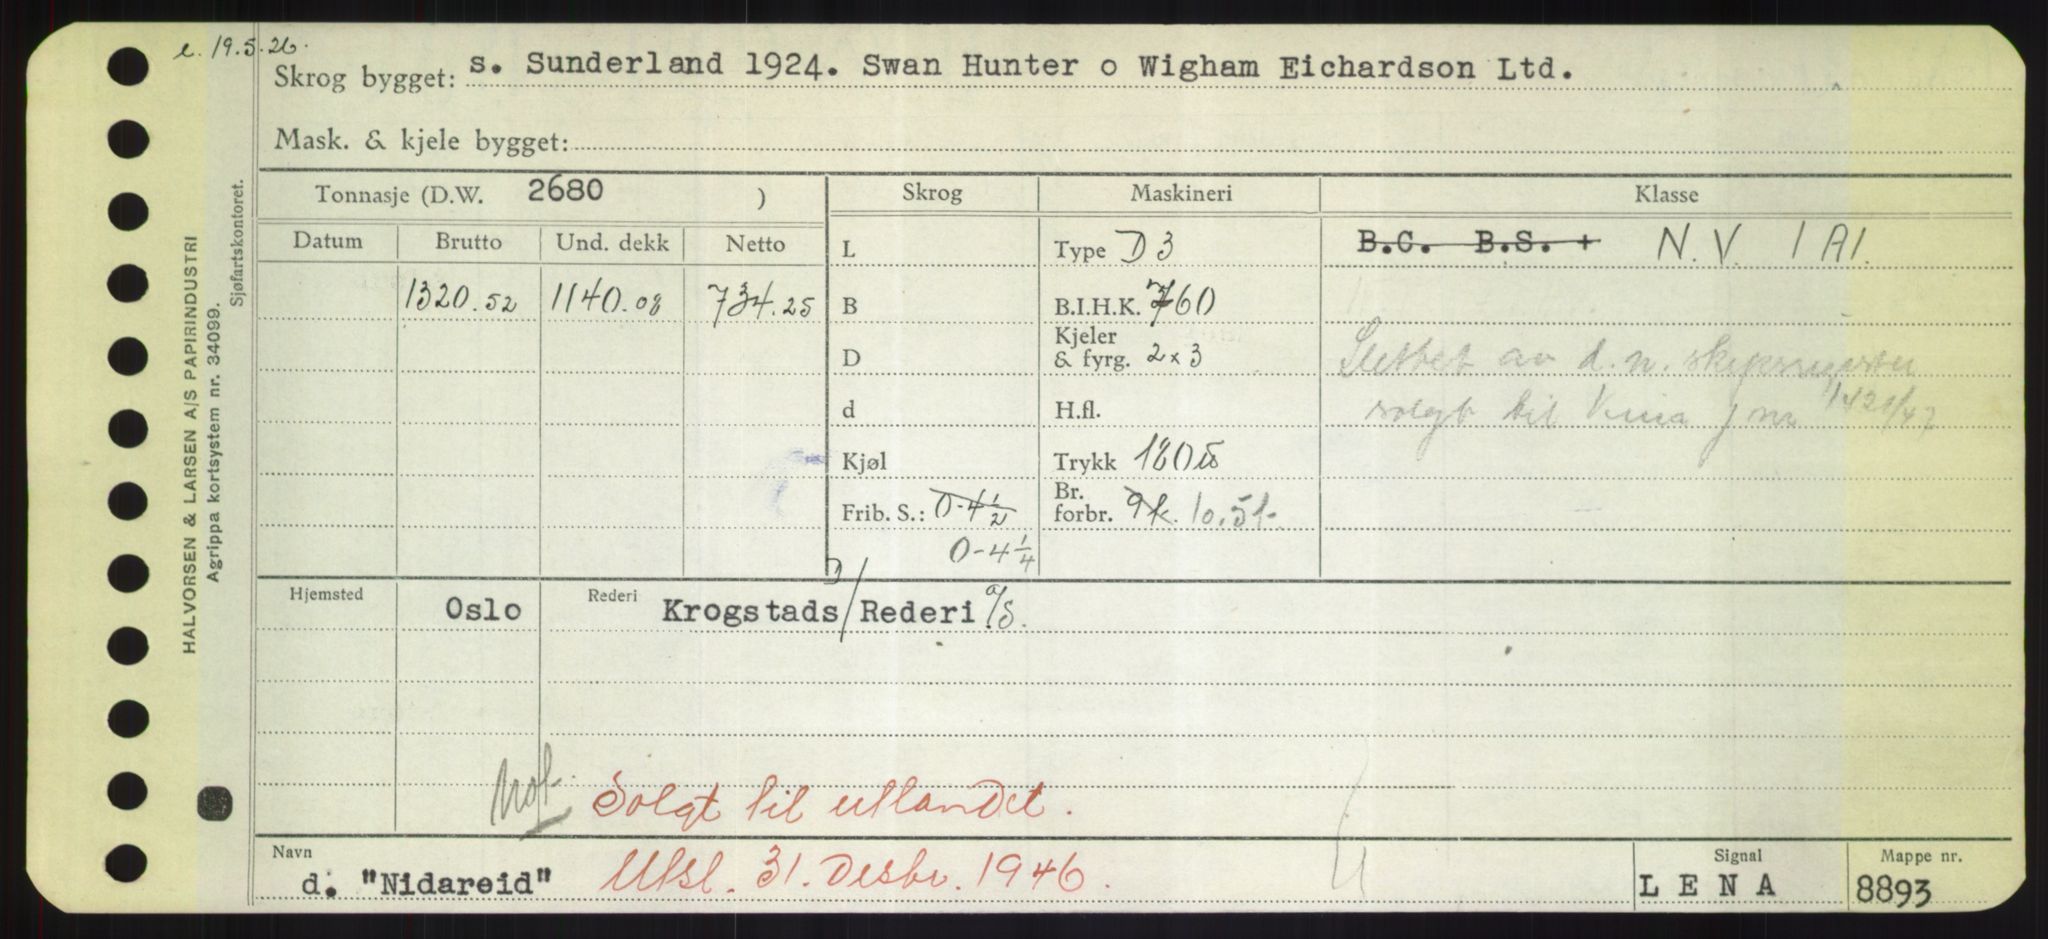 e. 19.5.26.
Skrog bygget: s. Sunderland 1924. Swan Hunter o Wigham Eichardson Ltd.
Mask. & kjele bygget:
Tonnasje (D.W. 2680 ) Skrog Maskineri Klasse
Datum Brutto Und. dekk Netto L Type D 3 B.C. B.S. + N.V. 1 A1.
1320.52 1140.08 734.25 B B.I.H.K. 760
D Kjeler & fyrg. 2 x 3 Slettet av d. n. skipsregister
d H.fl. solgt til Kina j nr 1421/47
Kjøl Trykk 180 lb
Frib. S.: 0-4½ Br. forbr. 9 k. 10.5 t.
0-4¼
Hjemsted Oslo Rederi Krogstads / Rederi A/S.
Solgt til utlandet.
Navn d. "Nidareid" Utsl. 31. Desbr. 1946. Signal L E N A Mappe nr. 8893
HALVORSEN & LARSEN A/S PAPIRINDUSTRI
Agrippa kortsystem nr. 34099.
Sjøfartskontoret.